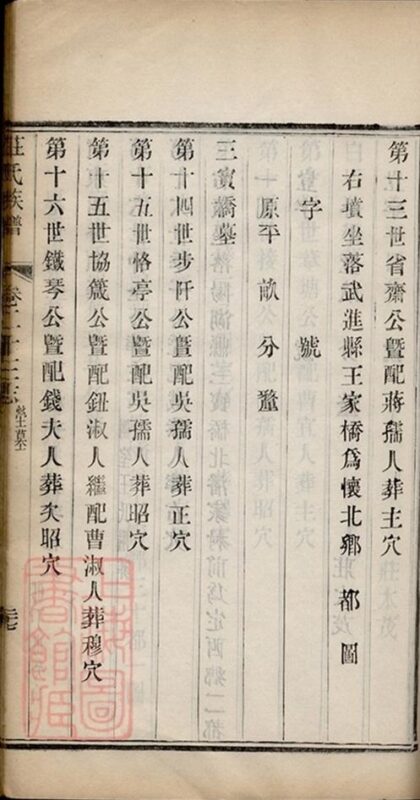 第十三世省齋公暨配蔣孺人葬主穴
右墳坐落武進縣王家橋爲懷北鄉 都 圖
字 號
原平 畝 分 釐
王家橋墓
第十四世步阡公暨配吳孺人葬正穴
第十五世恪亭公暨配吳孺人葬昭穴
第十五世協箴公暨配鈕淑人繼配曹淑人葬穆穴
第十六世鐵琴公暨配錢夫人葬矣昭穴
莊氏族譜
塋墓